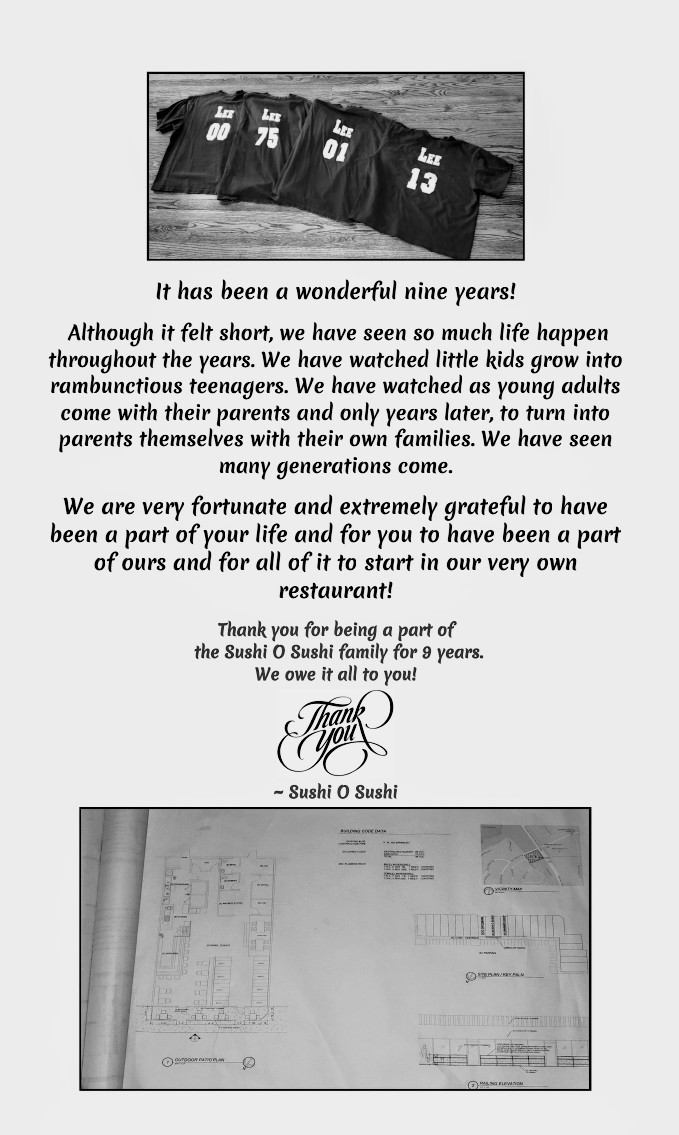 LEE
00
LEE
75
LEE
01
LEE
13
It has been a wonderful nine years!
Although it felt short, we have seen so much life happen
throughout the years. We have watched little kids grow into
rambunctious teenagers. We have watched as young adults
come with their parents and only years later, to turn into
parents themselves with their own families. We have seen
many generations come.
We are very fortunate and extremely grateful to have
been a part of your life and for you to have been a part
of ours and for all of it to start in our very own
restaurant!
Thank you for being a part of
the Sushi O Sushi family for 9 years.
We owe it all to you!
Thank
you
~ Sushi O Sushi
BUILDING CODE DATA
VICINITY MAP
SITE PLAN / KEY PALN
1 OUTDOOR PATIO PLAN
2 RAILING ELEVATION